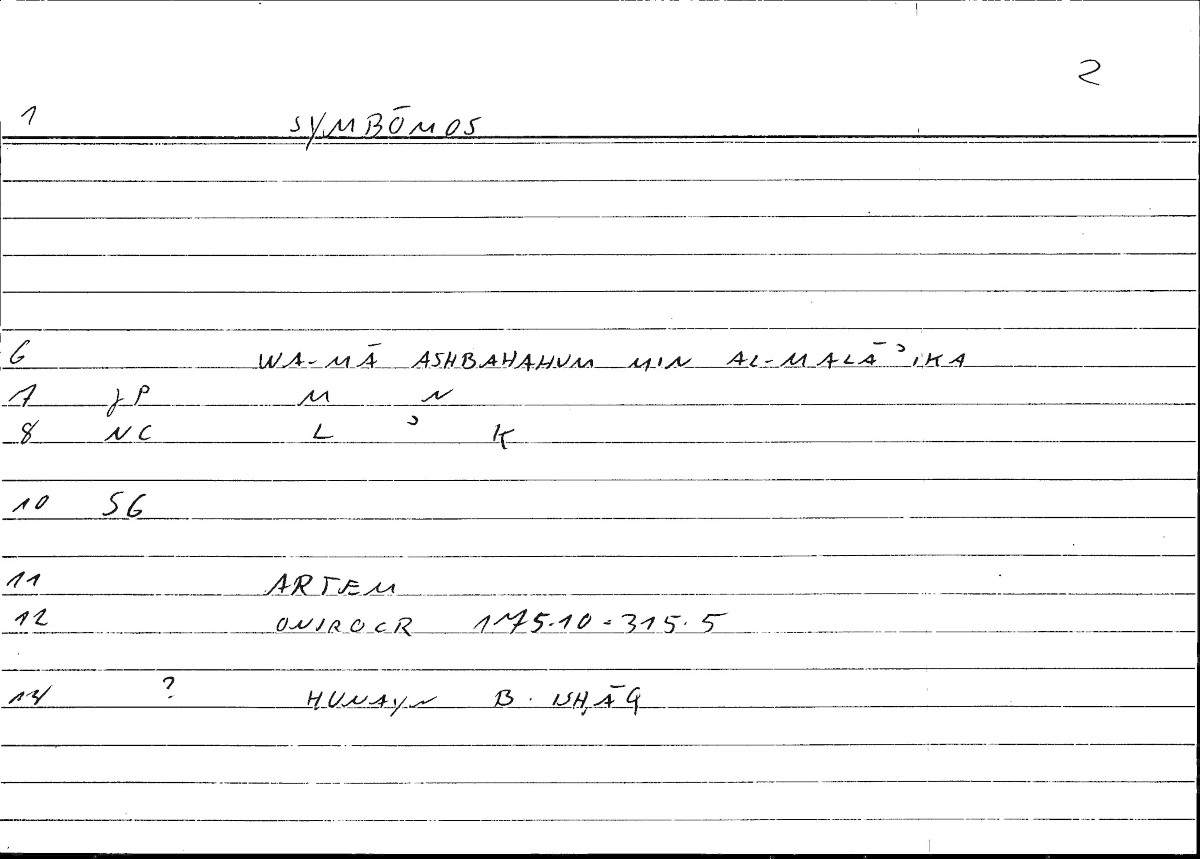 2
1 SYMBŌMOS
6 WA-MĀ ASHBAHAHUM MIN AL-MALĀʾIKA
7 JP M N
8 NC L ʾ K
10 SG
11 ARTEM
12 ONIROCR 175.10 = 315.5
14 ? HUNAYN B. ISḤĀQ